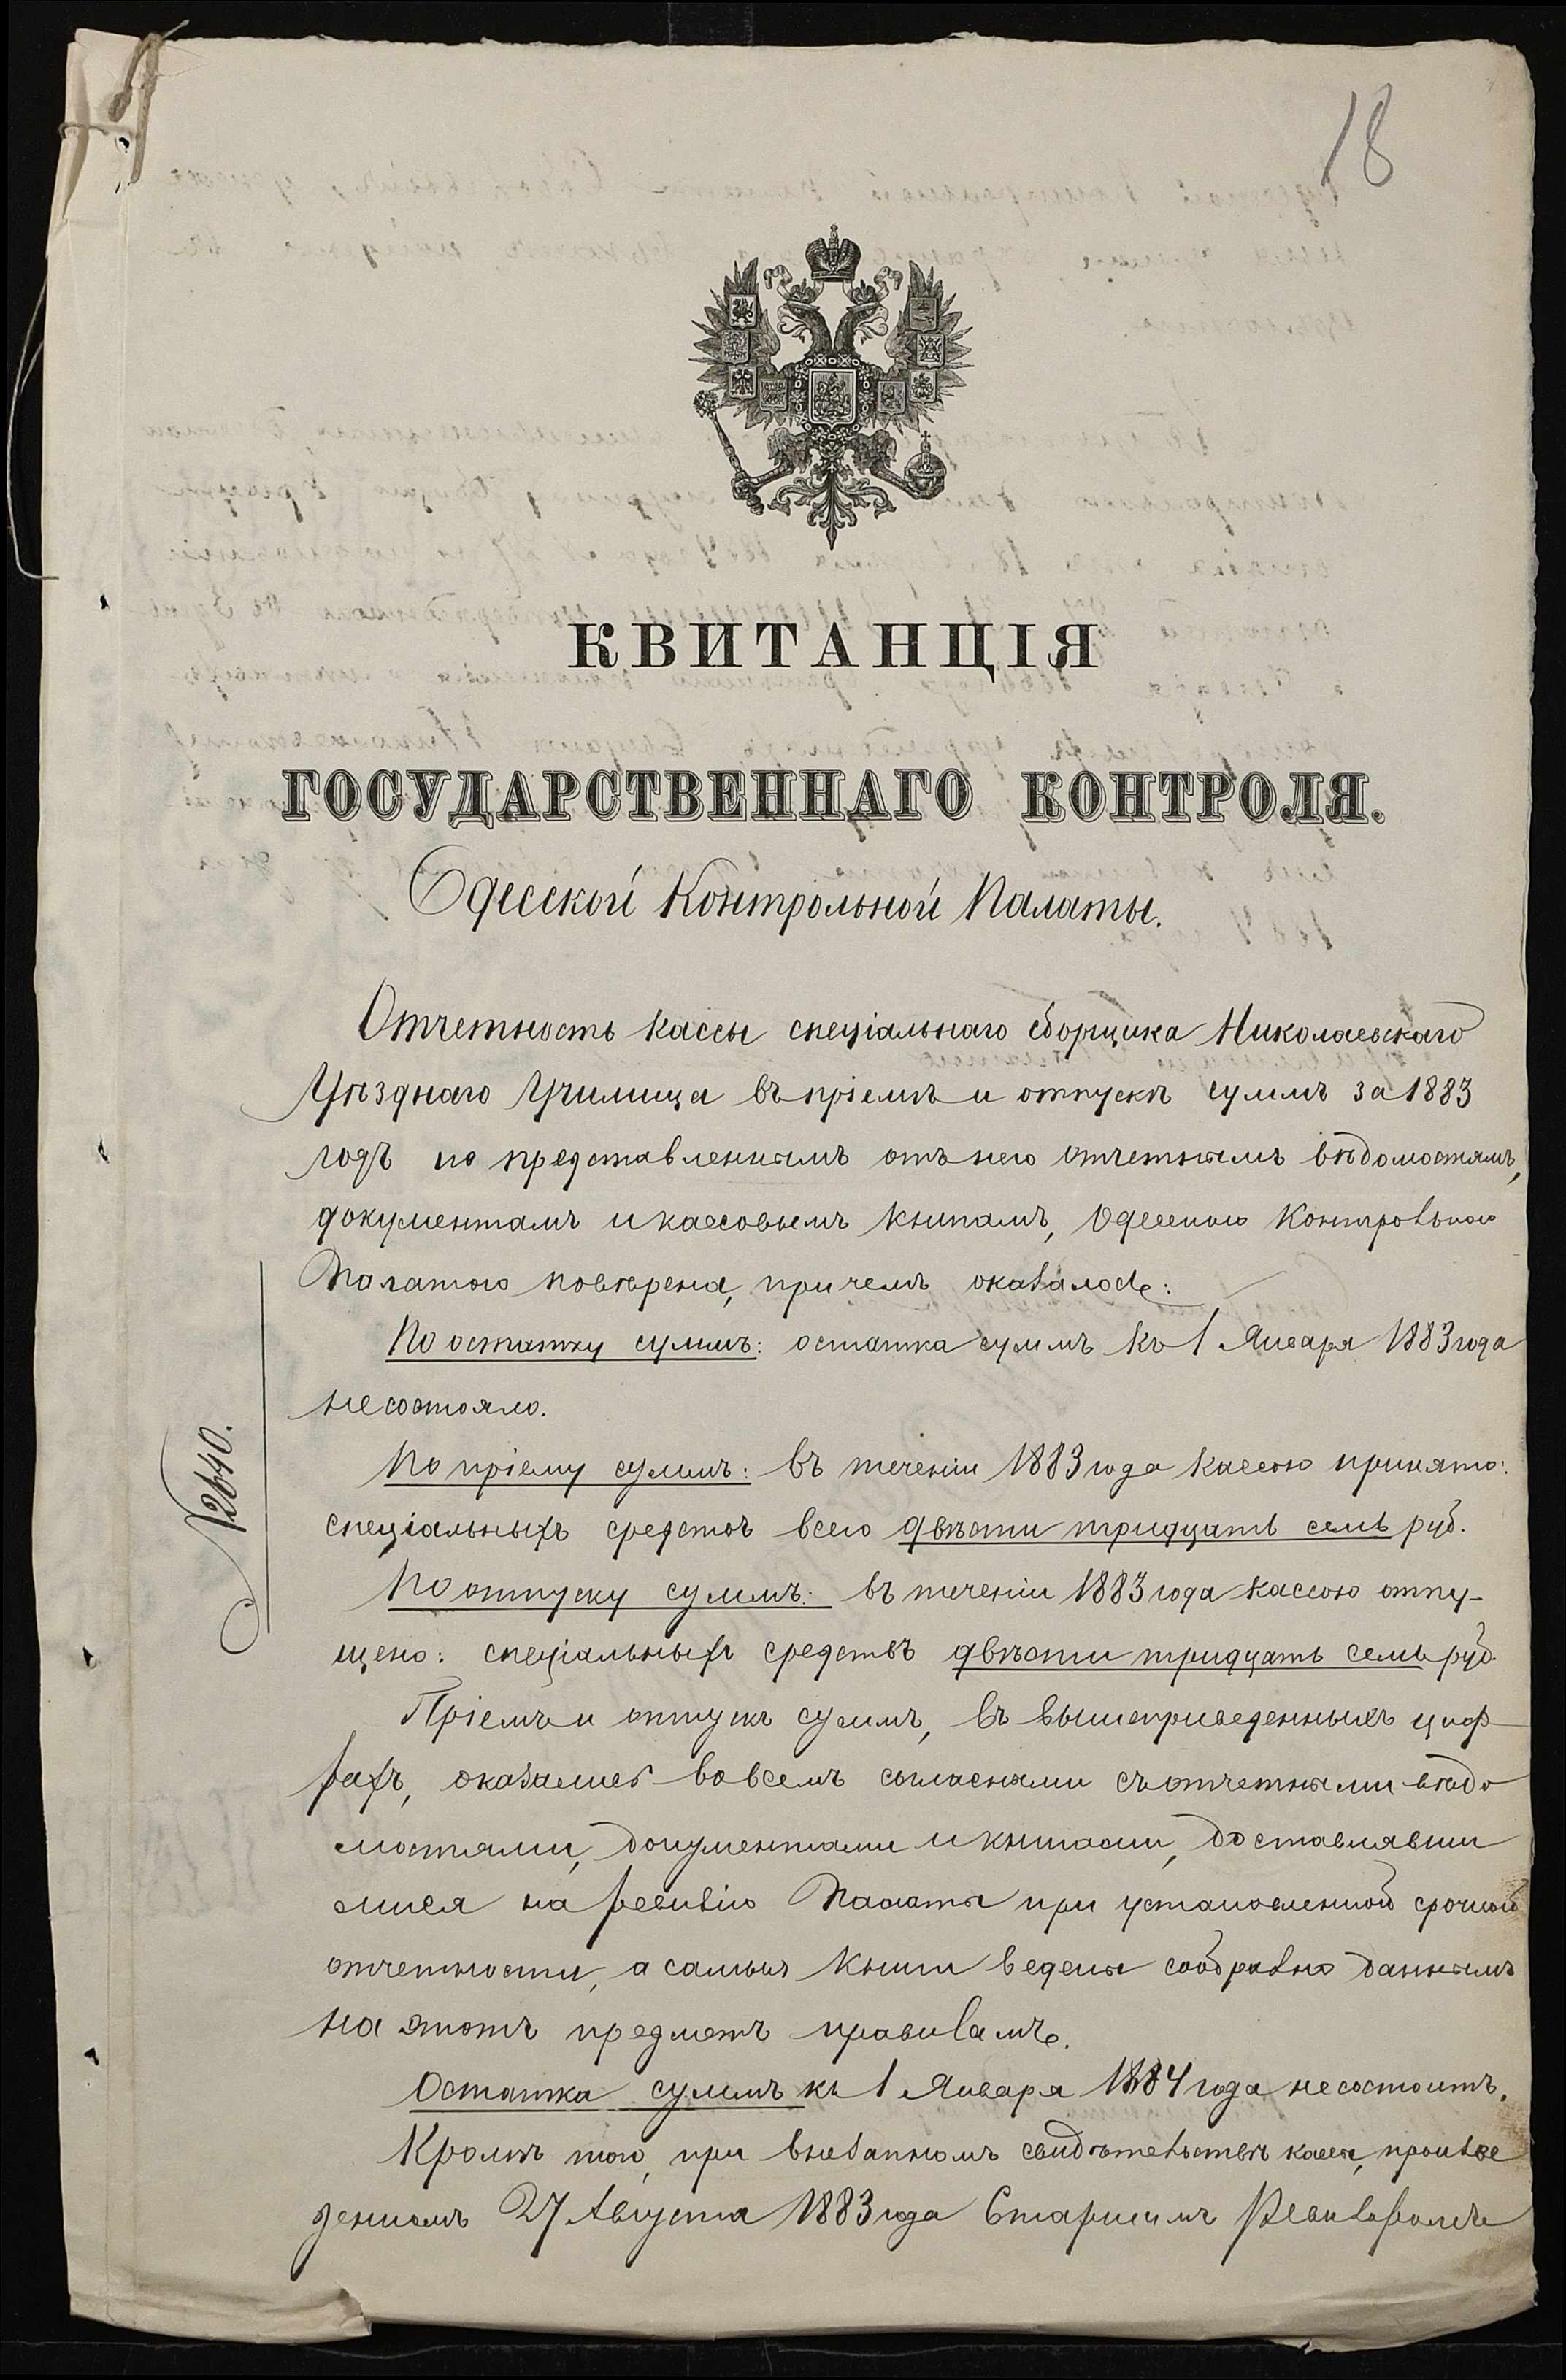 18
КВИТАНЦІЯ
ГОСУДАРСТВЕННАГО КОНТРОЛЯ.
Одесской Контрольной Палаты.
Отчетность кассы спеціальнаго сборщика Николаевскаго
Уѣзднаго Училища въ пріемѣ и отпускѣ суммъ за 1883
годъ по представленнымъ отъ него отчетнымъ вѣдомостямъ,
документамъ и кассовымъ книгамъ, Одесскою Контрольною
Палатою повѣрена, при чемъ оказалось:
По остатку суммъ: остатка суммъ къ 1 Января 1883 года
не состояло.
По пріему суммъ: въ теченіи 1883 года кассою принято:
спеціальныхъ средствъ всего двѣсти тридцать семь руб.
По отпуску суммъ: въ теченіи 1883 года кассою отпу-
щено: спеціальныхъ средствъ двѣсти тридцать семь руб.
Пріемъ и отпускъ суммъ, въ вышеприведенныхъ циф-
рахъ, оказались во всемъ согласными съ отчетными вѣдо
мостями, документами и книгами, доставлявши
мися на ревизію Палаты при установленной срочной
отчетности, а самыя книги ведены сообразно даннымъ
на этотъ предметъ правиламъ.
Остатка суммъ къ 1 Января 1884 года не состоитъ.
Кромѣ того, при внезапномъ свидѣтельствѣ кассы, произве
денномъ 27 Августа 1883 года Старшимъ Ревизоромъ
№2640.